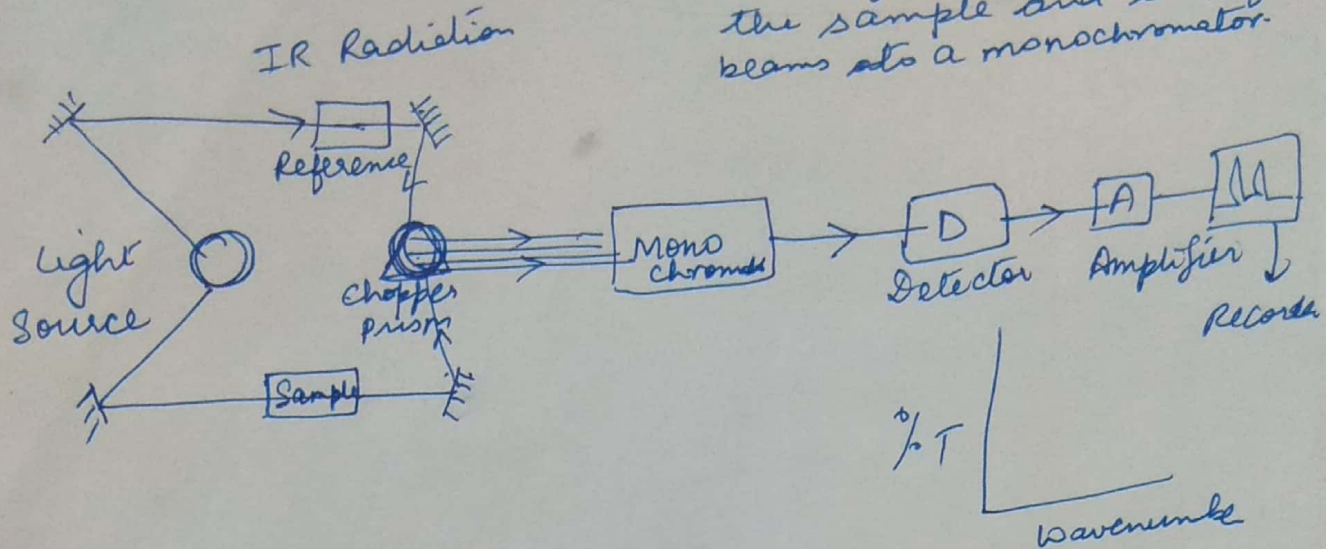 the sample and
beams to a monochromator.
IR Radiation
Reference
Light
Source
Chopper
prism
Sample
Mono
D
Detector
A
Amplifier
Recorder
% T